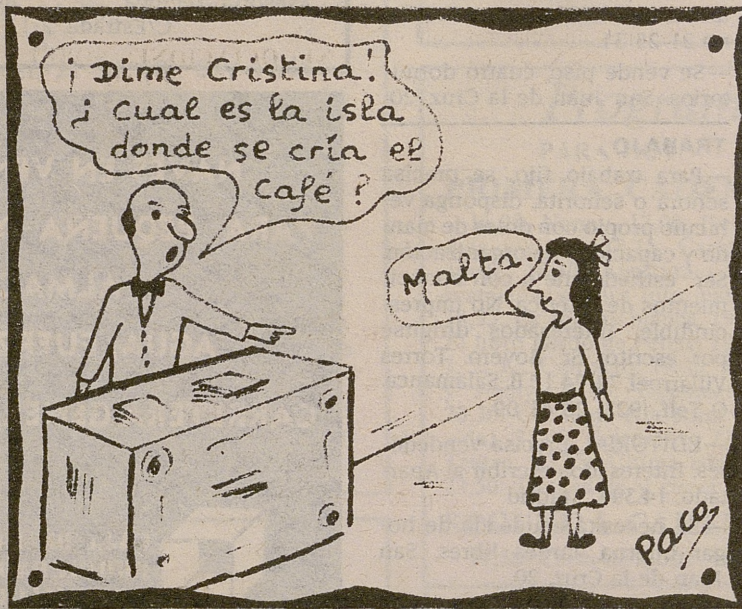 ¡ Dime Cristina!
¿ cual es la isla
donde se cría el
Café ?
Malta.
Paco